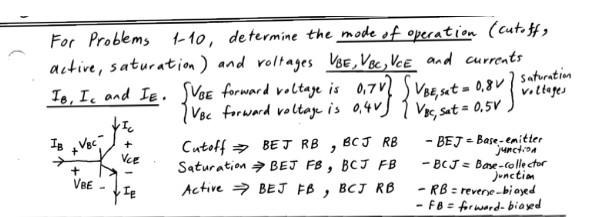 For Problems 1-10, determine the mode of operation (cutoff,
active, saturation) and voltages VBE, VBC, VCE and currents
IB, IC and IE. {VBE forward voltage is 0,7V} {VBE,sat = 0,8V} saturation
{VBC forward voltage is 0,4V} {VBC,sat = 0,5V} voltages
IC
IB + VBC - +
VCE
-
+
VBE -
IE
Cutoff ⇒ BEJ RB , BCJ RB
Saturation ⇒ BEJ FB , BCJ FB
Active ⇒ BEJ FB , BCJ RB
- BEJ = Base-emitter
junction
- BCJ = Base-collector
junction
- RB = reverse-biased
- FB = forward-biased